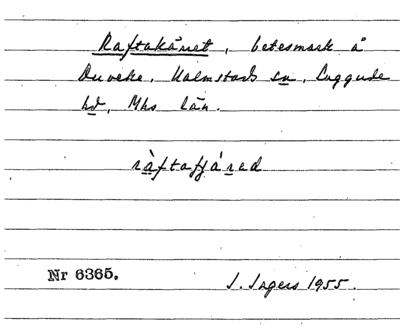 Raftakäret, betesmark å
Duveke, Halmstads sn, Luggude
hd, Mhs län.
ràftafjáred
Nr 6365.
J. Ingers 1955.